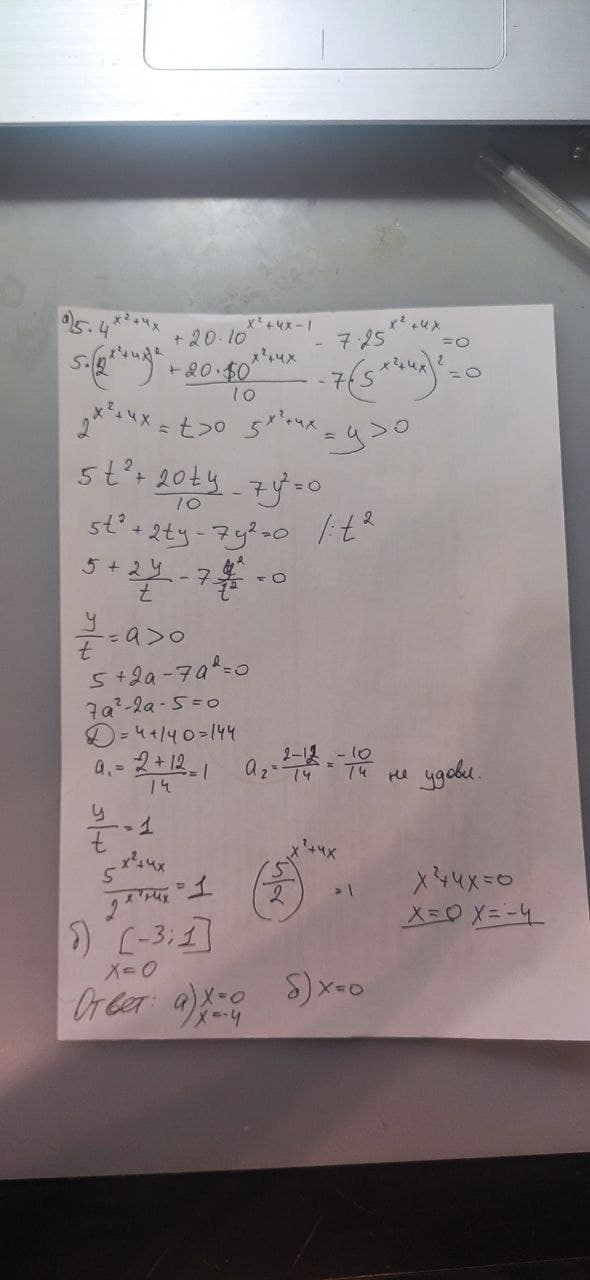 а) 5·4^(x²+4x) + 20·10^(x²+4x-1) - 7·25^(x²+4x) =0
5·(2^(x²+4x))² + 20·10^(x²+4x)/10 - 7·(5^(x²+4x))² =0
2^(x²+4x) = t>0 5^(x²+4x) = y>0
5t² + 20ty/10 - 7y² =0
5t² + 2ty - 7y² =0 /:t²
5 + 2y/t - 7y²/t² =0
y/t = a>0
5+2a-7a²=0
7a²-2a-5=0
D=4+140=144
a₁= (2+12)/14 =1 a₂= (2-12)/14 = -10/14 не удовл.
y/t =1
5^(x²+4x)/2^(x²+4x) =1 (5/2)^(x²+4x) =1 x²+4x=0
x=0 x=-4
б) [-3;1]
x=0
Ответ: а) x=0 б) x=0
x=-4